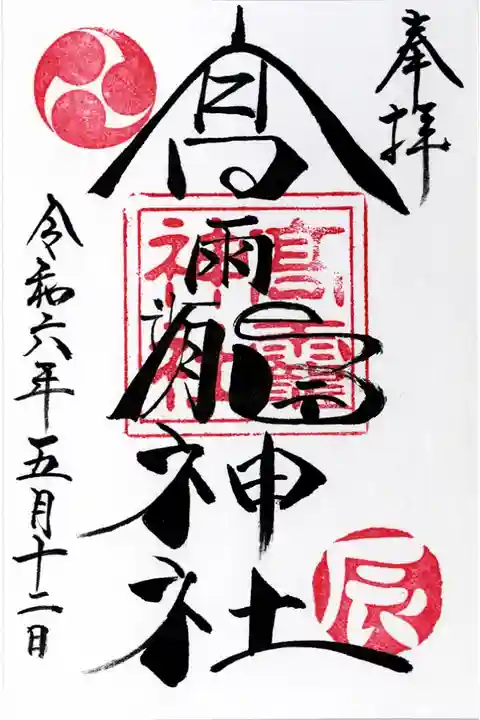 奉拝
高龗神社
高龗
神社
辰
令和六年五月十二日